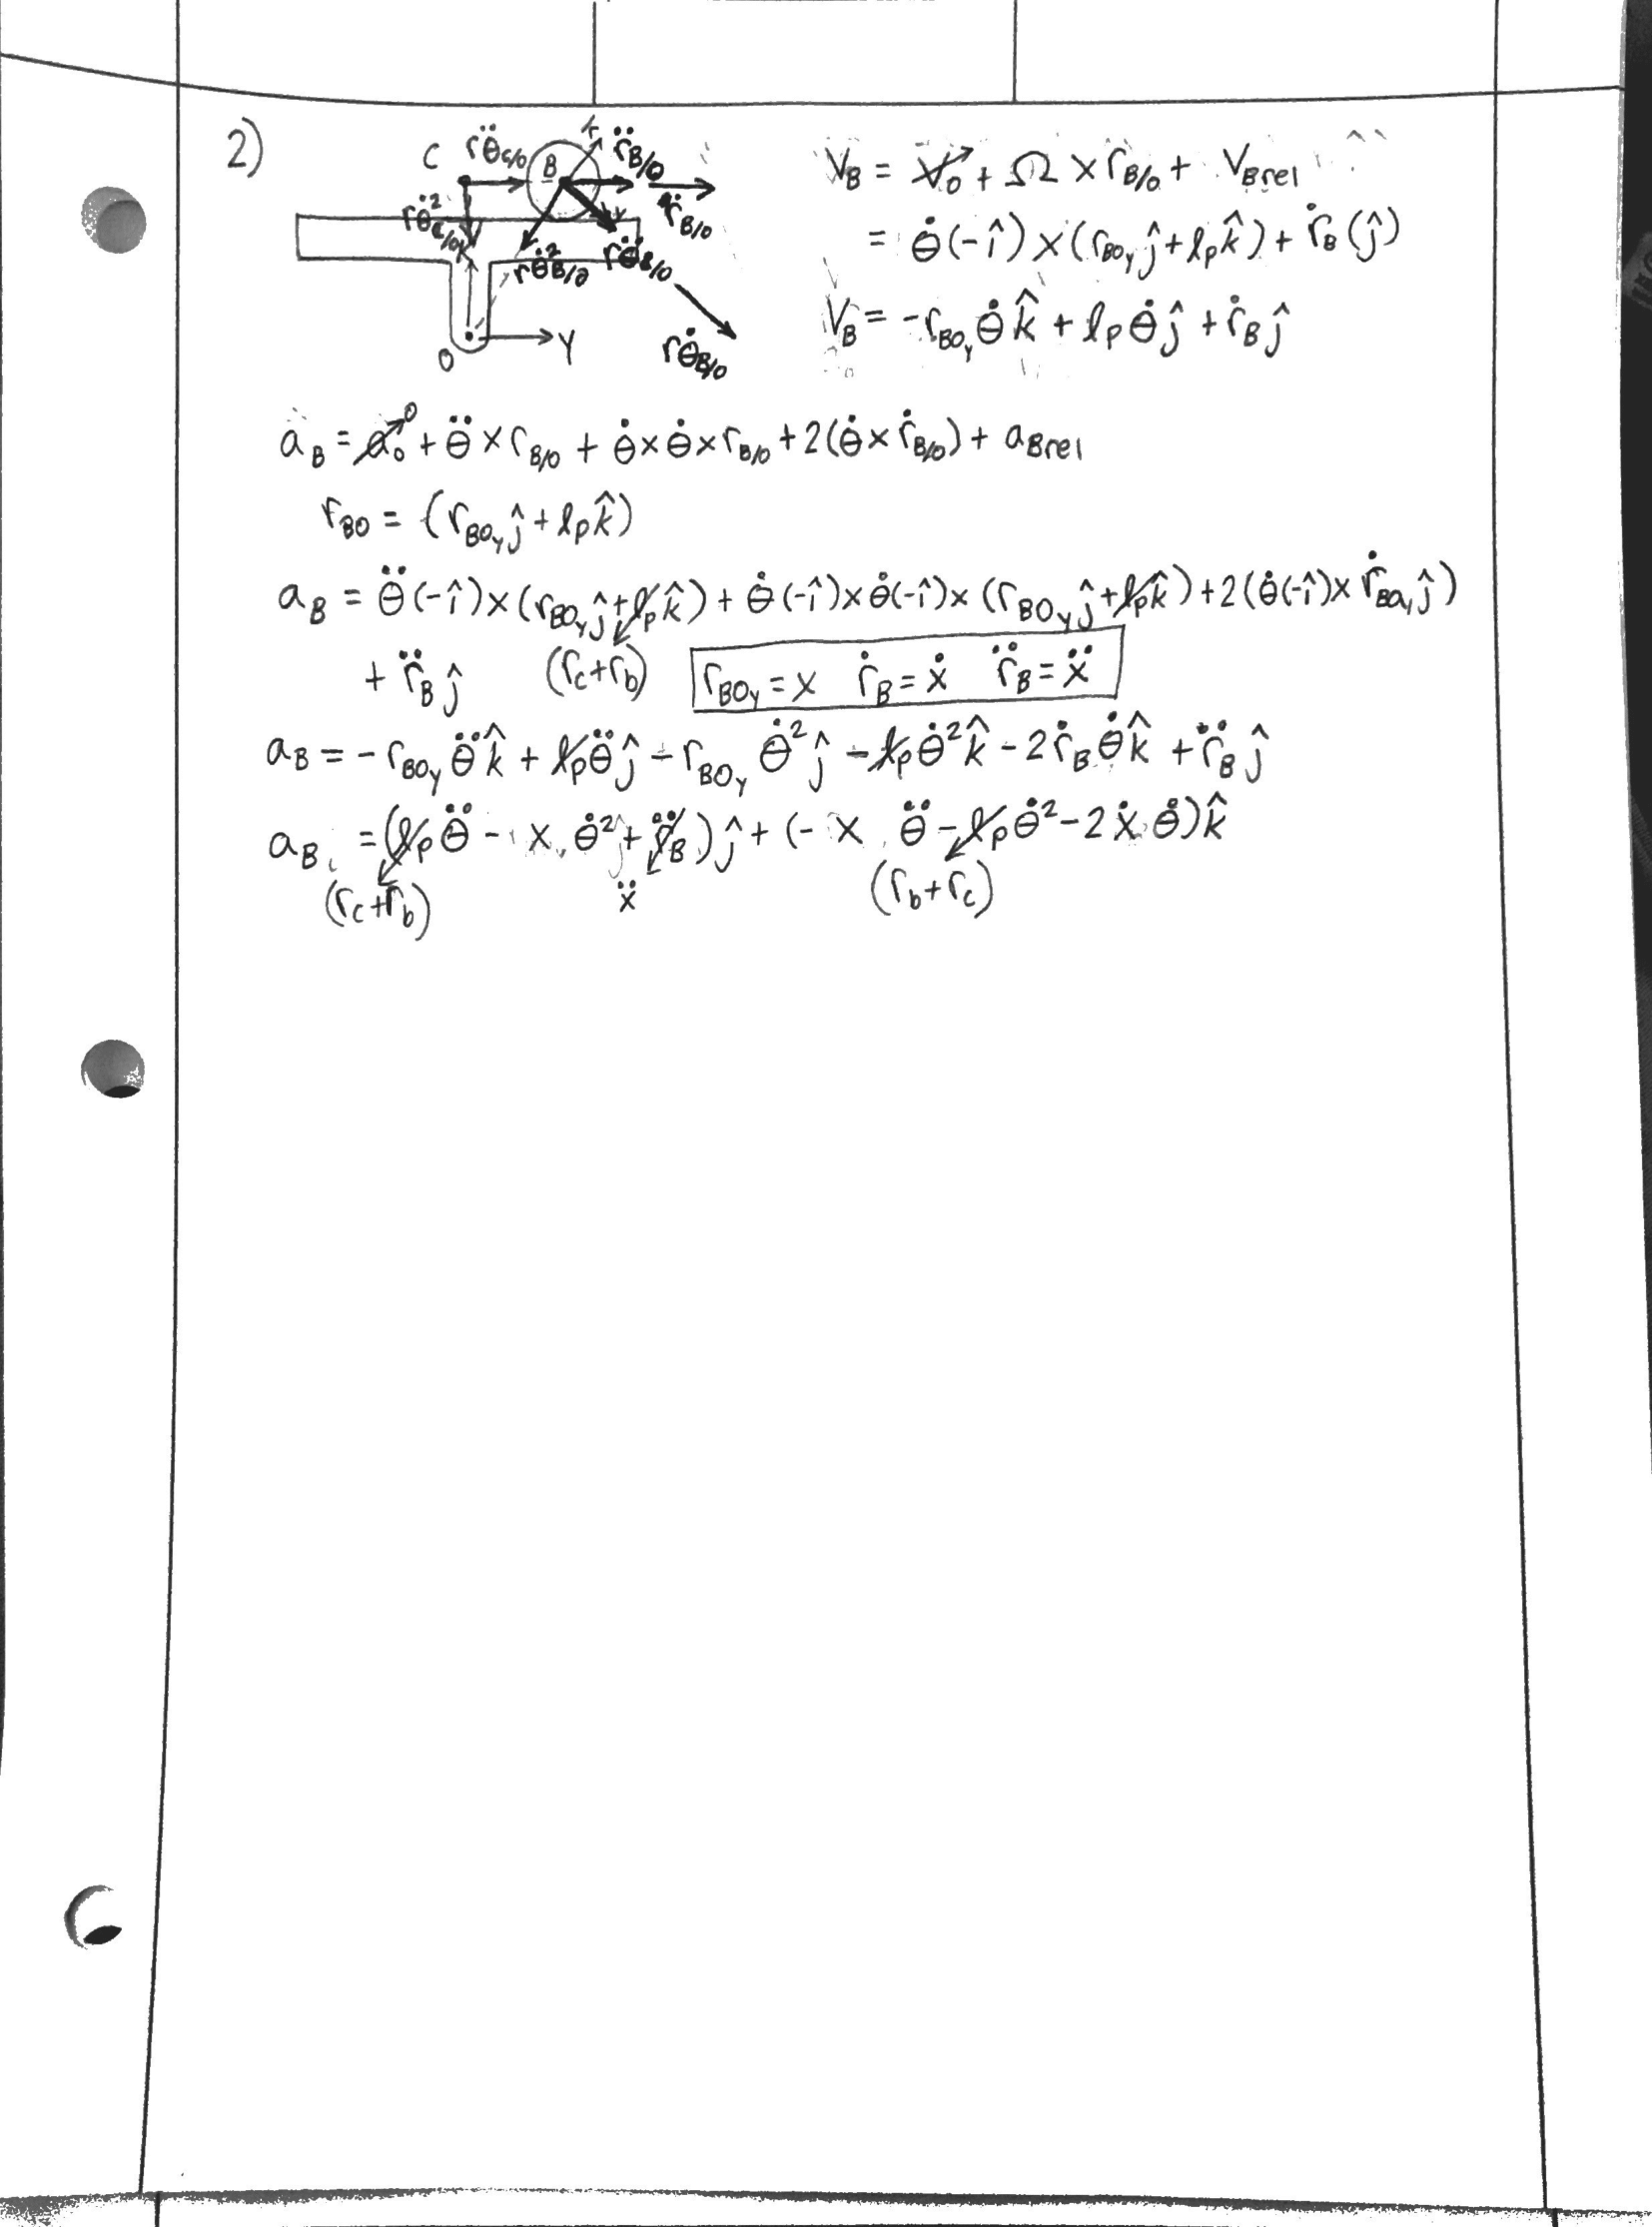 2)
C rθ̈_{C/O} B r̈_{B/O}
rθ̇²_{C/O} ṙ_{B/O}
rθ̇²_{B/O} rθ̈_{B/O}
O Y rθ̇_{B/O}
V_B = V_O + Ω × r_{B/O} + V_{Brel}
= θ̇(-î) × (r_{BO_y} ĵ + l_p k̂) + ṙ_B (ĵ)
V_B = -r_{BO_y} θ̇ k̂ + l_p θ̇ ĵ + ṙ_B ĵ
a_B = a_O→0 + θ̈ × r_{B/O} + θ̇ × θ̇ × r_{B/O} + 2(θ̇ × ṙ_{B/O}) + a_{Brel}
r_{BO} = (r_{BO_y} ĵ + l_p k̂)
a_B = θ̈(-î) × (r_{BO_y} ĵ + l_p k̂) + θ̇(-î) × θ̇(-î) × (r_{BO_y} ĵ + l_p k̂) + 2(θ̇(-î) × ṙ_{BO_y} ĵ)
+ r̈_B ĵ (r_c + r_b) r_{BO_y} = x ṙ_B = ẋ r̈_B = ẍ
a_B = -r_{BO_y} θ̈ k̂ + l_p θ̈ ĵ - r_{BO_y} θ̇² ĵ - l_p θ̇² k̂ - 2 ṙ_B θ̇ k̂ + r̈_B ĵ
a_B = (l_p θ̈ - x θ̇² + r̈_B) ĵ + (- x θ̈ - l_p θ̇² - 2 ẋ θ̇) k̂
(r_c + r_b) ẍ (r_b + r_c)